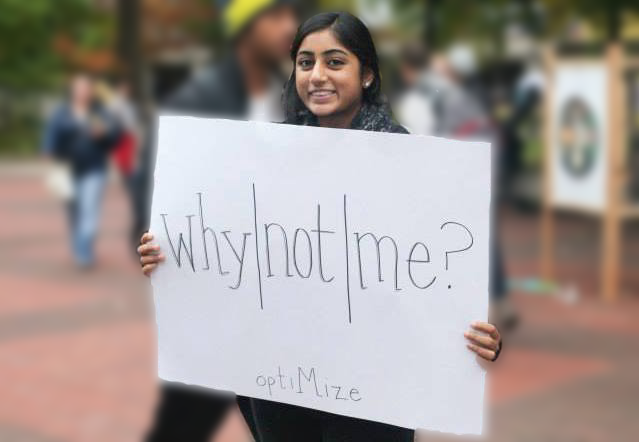 why|not|me?
optiMize